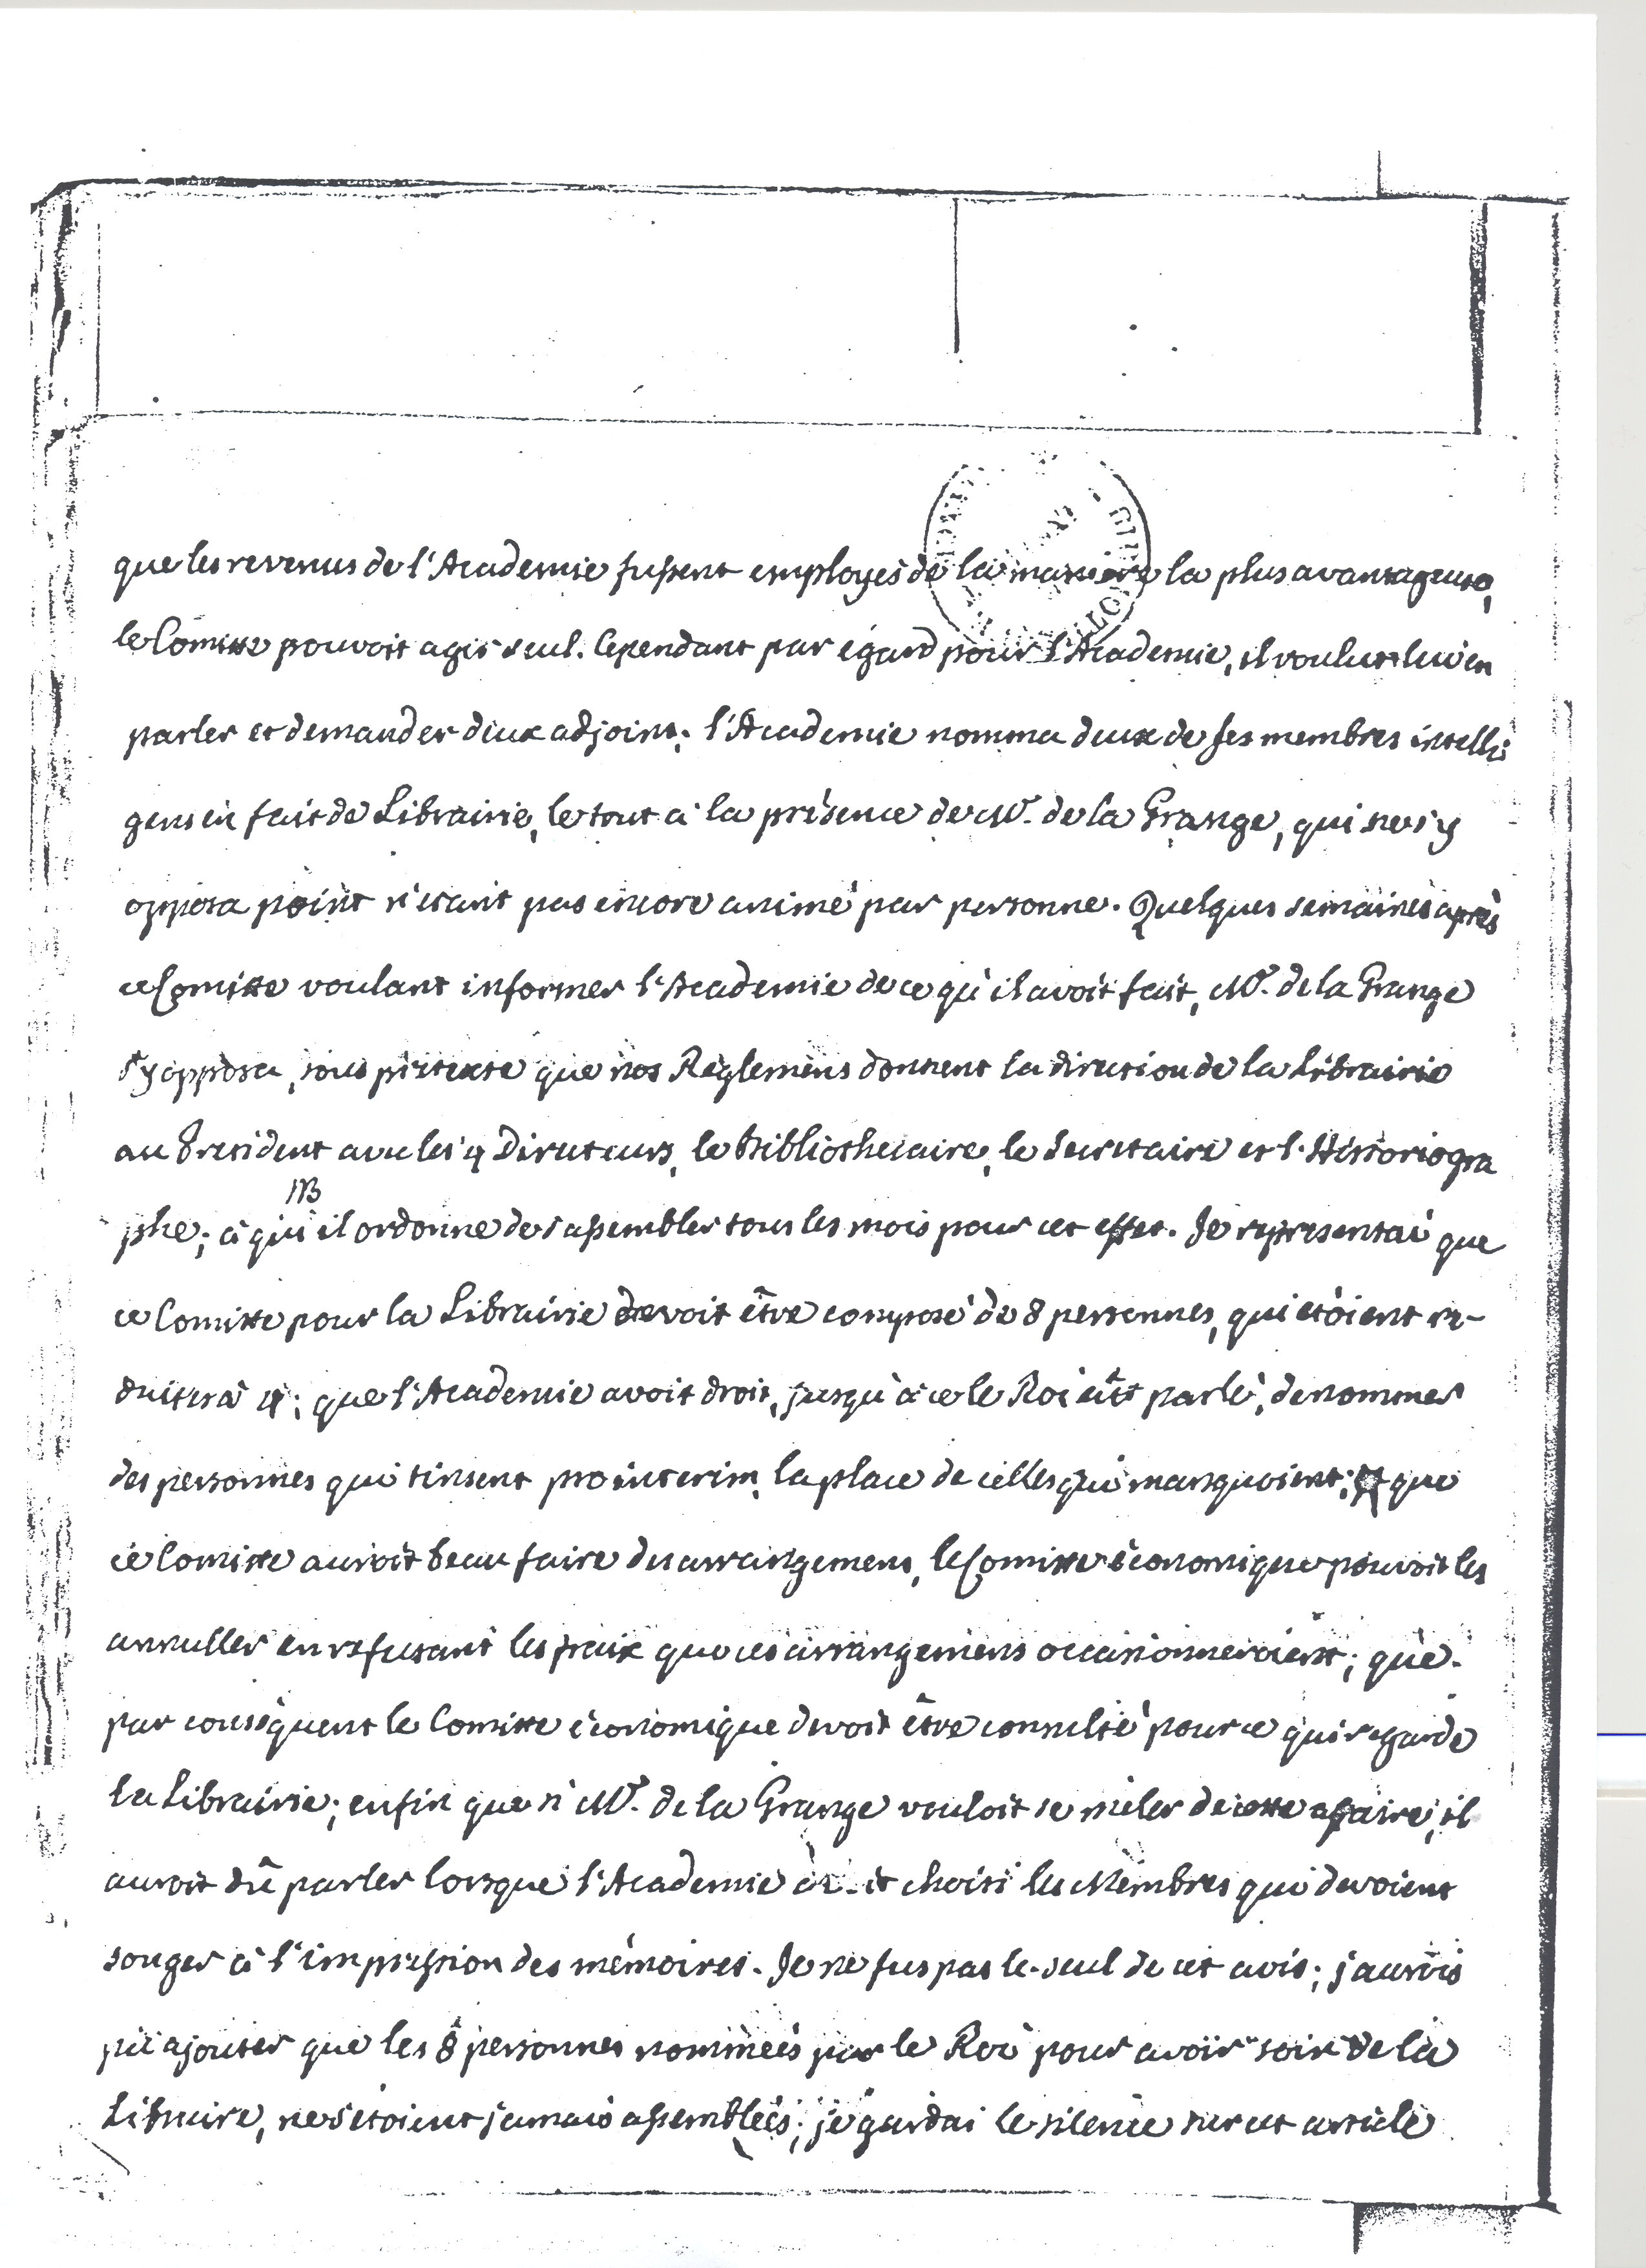 que les revenus de l'Academie fussent employés de la maniere la plus avantageuse,
le Comitte pouvoit agir seul. Cependant par égard pour l'Academie, il voulut lui en
parler et demander deux adjoint; l'Academie nomma deux de ses membres intelli
gens en fait de Librairie, le tout à la présence de Mr. de la Grange, qui ne s'y
opposa point n'etant pas encore animé par personne. Quelques semaines après
ce Comitte voulant informer l'Academie de ce qu'il avoit fait, Mr. de la Grange
s'y opposa, sous prétexte que nos Réglemens donnent la direction de la Librairie
au President avec les 4 Directeurs, le Bibliothecaire, le Secretaire et l'Historiogra
NB
phe; à qui il ordonne de s'assembler tous les mois pour cet effet. Je representai que
ce Comitte pour la Librairie devoit être composé de 8 personnes, qui etoient re-
duites à 4; que l'Academie avoit droit, jusqu'à ce le Roi eût parlé, de nommer
des personnes qui tinsent pro interim la place de celles qui manquoient; et que
ce Comitte auroit beau faire des arrangemens, le Comitte économique pouvoit les
annuller en refusant les fraix que ces arrangemens occasionneroient; que
par conséquent le Comitte économique devoit être consulté pour ce qui regarde
la Librairie; enfin que si Mr. de la Grange vouloit se mêler de cette affaire, il
auroit dû parler lorsque l'Academie choisi les Membres qui devoient
songer à l'impression des mémoires. Je ne fus pas le seul de cet avis; j'aurois
pu ajouter que les 8 personnes nommées par le Roi pour avoir soin de la
Libraire, ne s'etoient jamais assemblées; je gardai le silence sur cet article